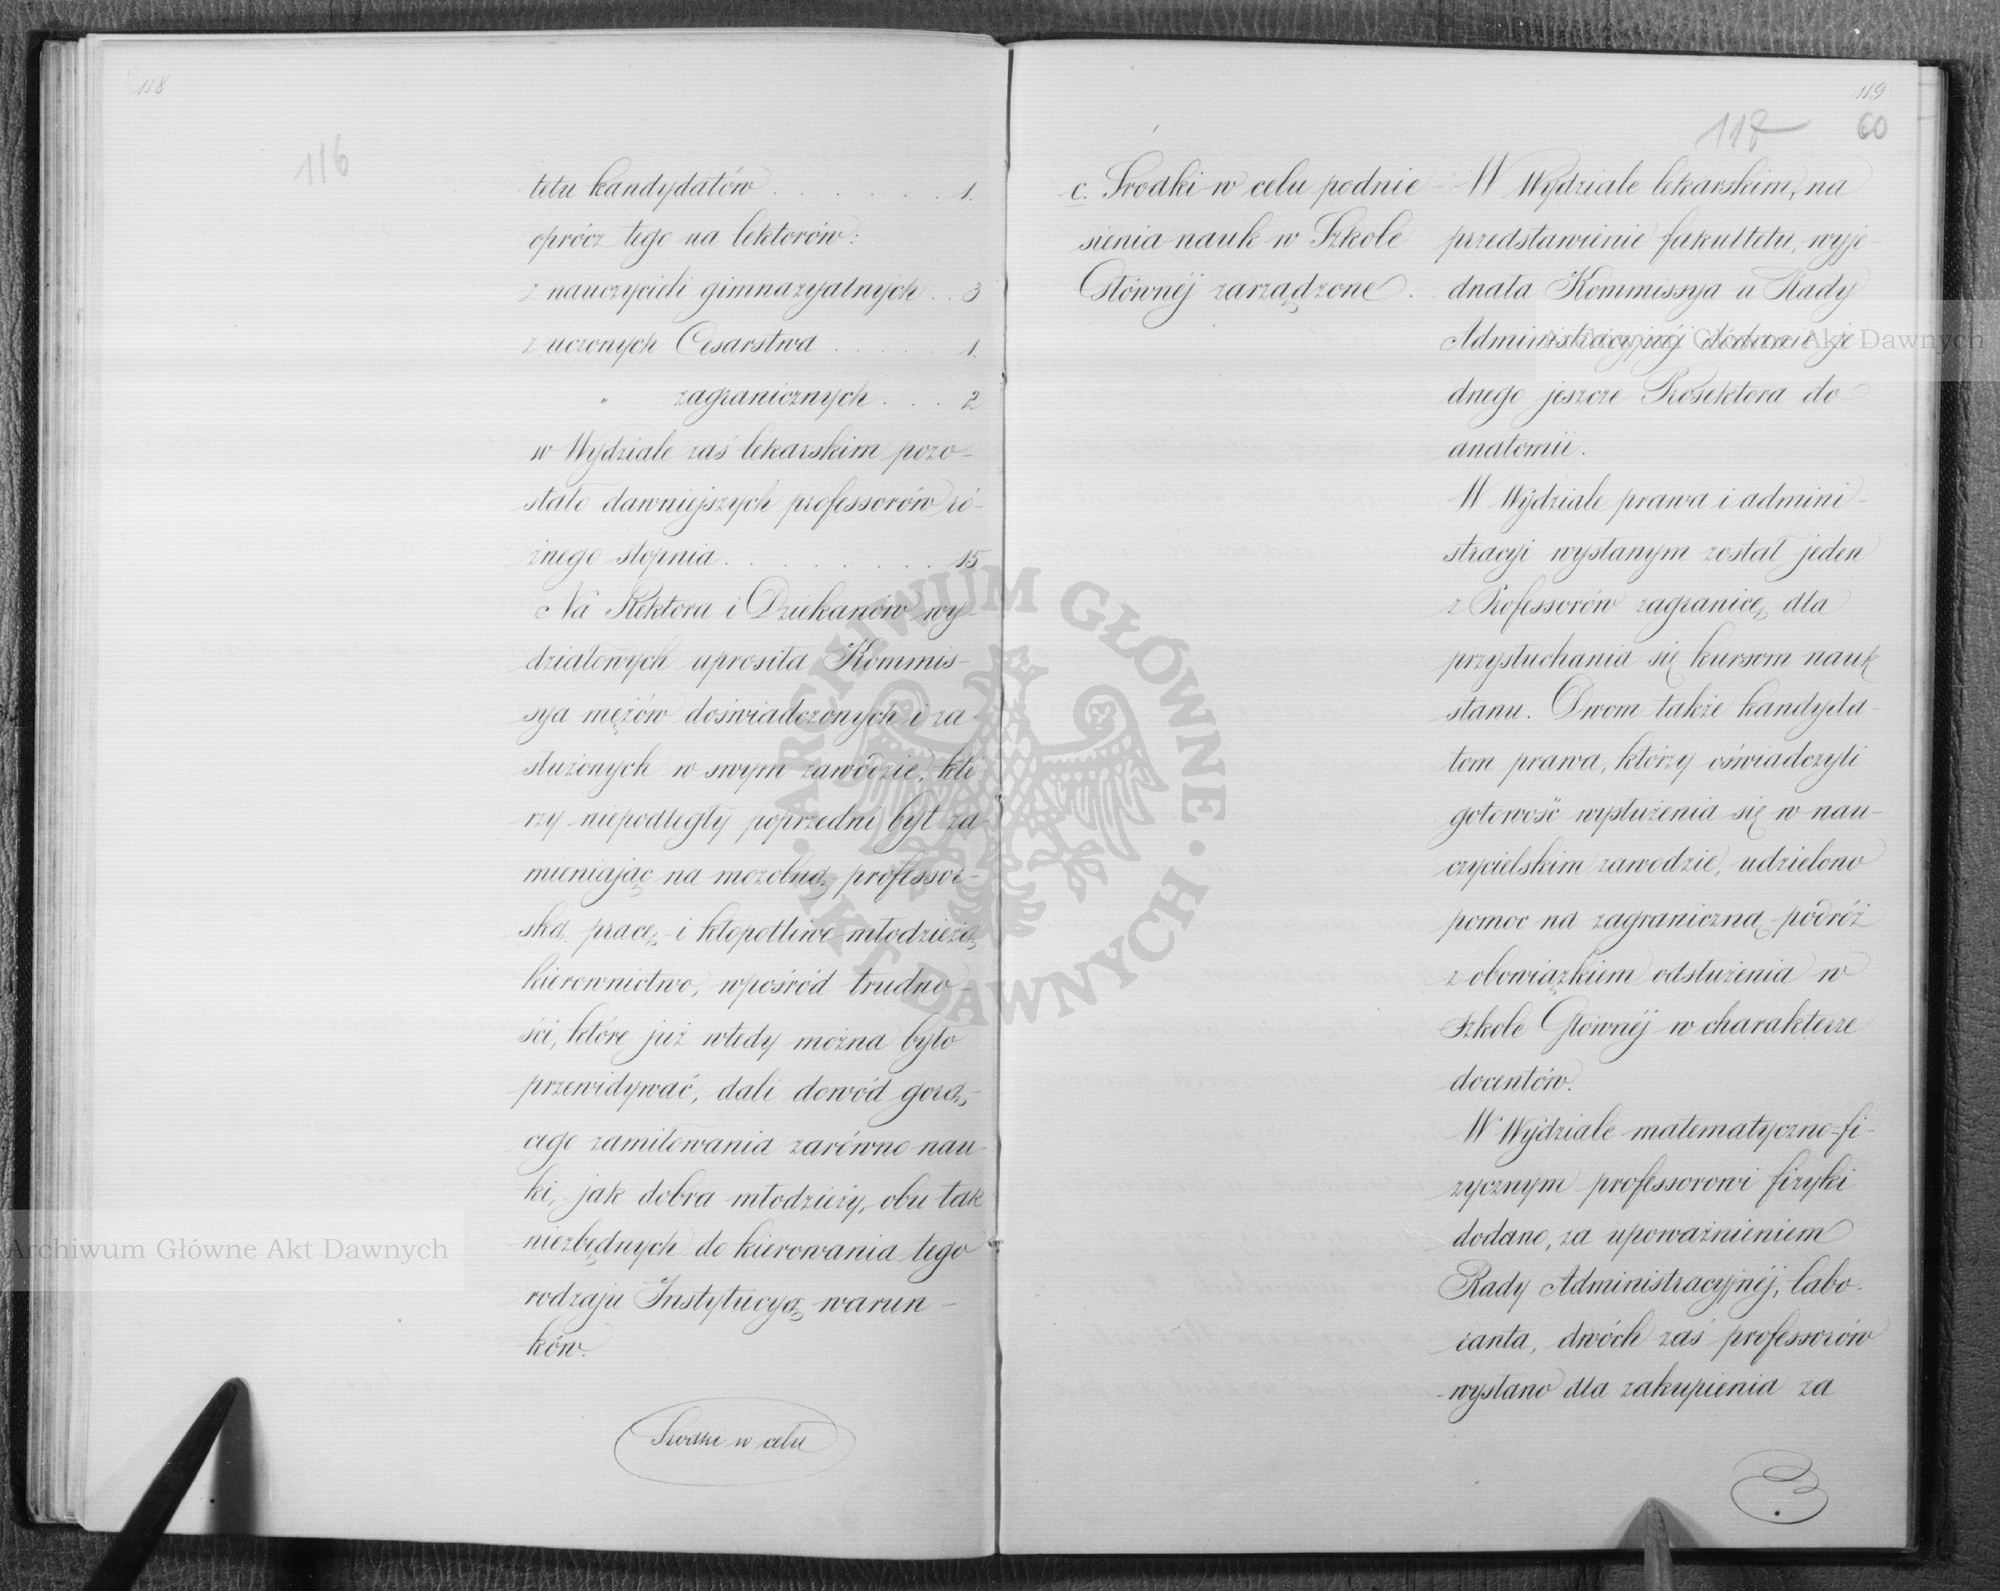 118
116
tetu kandydatów . . . . . . . 1.
oprócz tego na lektorów:
z nauczycieli gimnazyalnych . . 3
z uczonych Cesarstwa . . . . . . 1.
" zagranicznych . . . 2
w Wydziale zaś lekarskim pozo-
stało dawniejszych professorów ró-
żnego stopnia . . . . . . . . . 15
Na Rektora i Dziekanów wy-
działowych uprosiła Kommis-
sya mężów doświadczonych i za-
służonych w swym zawodzie, któ
rzy niepodległy poprzedni byt za-
mieniając na mozolną professor-
ską pracę i kłopotliwe młodzieżą
kierownictwo, wpośród trudno-
ści, które już wtedy można było
przewidywać, dali dowód gorą-
cego zamiłowania zarówno nau-
ki, jak dobra młodzieży, obu tak
niezbędnych do kierowania tego
rodzaju Instytucyą warun-
ków.
Środki w celu
119
118
60
c. Środki w celu podnie-
sienia nauk w Szkole
Głównéj zarządzone.
W Wydziale lekarskim, na
przedstawienie fakultetu, wyje-
dnała Kommissya u Rady
Administracyjnéj dodanie je-
dnego jeszcze Prosektora do
anatomii.
W Wydziale prawa i admini-
stracyi wysłanym został jeden
z Professorów zagranicę, dla
przysłuchania się kursom nauk
stanu. Dwom także kandyda-
tom prawa, którzy oświadczyli
gotowość wysłużenia się w nau-
czycielskim zawodzie, udzielono
pomoc na zagraniczną podróż
z obowiązkiem odsłużenia w
Szkole Głównéj w charakterze
docentów.
W Wydziale matematyczno-fi-
zycznym professorowi fizyki
dodano, za upoważnieniem
Rady Administracyjnéj, labo-
ranta, dwóch zaś professorów
wysłano dla zakupienia za
ARCHIWUM GŁÓWNE · AKT DAWNYCH ·
Archiwum Główne Akt Dawnych
Archiwum Główne Akt Dawnych